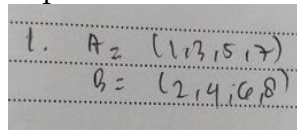 1. A = (1,3,5,7)
B = (2,4,6,8)